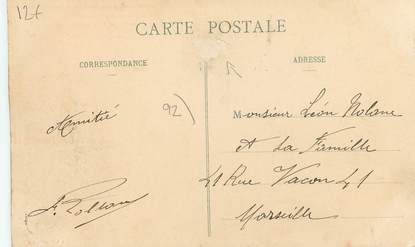 12f
CARTE POSTALE
CORRESPONDANCE
ADRESSE
92)
Amitié
Monsieur Léon Nolane
et La Famille
41 Rue Vacon 41
Marseille